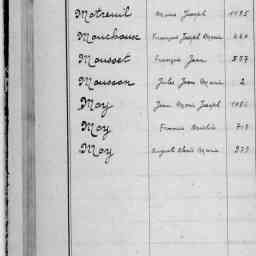 Motreuil Marie Joseph 1195
Mouchoux François Joseph Marie 460
Mousset François Jean 587
Mousson Jules Jean Marie 2
Moy Jean Marie Joseph 1086
Moy Francis 719
Moy Auguste Marie 979